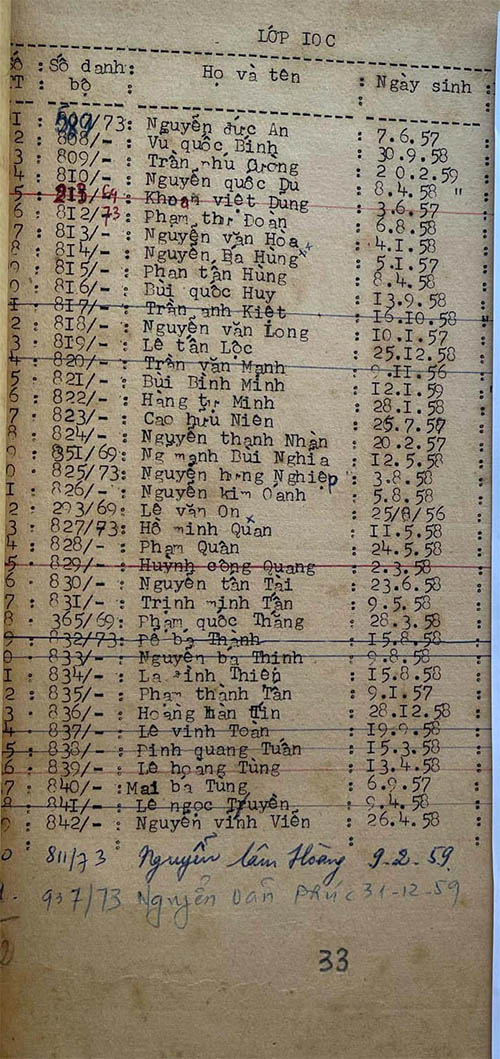 LỚP IOC
Số : Số danh bộ : Họ và tên : Ngày sinh :
I : /73: Nguyễn đức An : 7.6.57
2 : 808/- : Vũ quốc Bình : 30.9.58
3 : 809/- : Trần như Cường : 20.2.59
4 : 810/- : Nguyễn quốc Du : 8.4.58 "
5 : 213/69 : Khoan viêt Dung : 3.6.57
6 : 812/73 : Phạm thư Đoàn : 6.8.58
7 : 813/- : Nguyễn văn Hòa : 4.I.58
8 : 814/- : Nguyễn Bá Hùng : 5.I.57
9 : 815/- : Phan tấn Hùng : 8.4.58
0 : 816/- : Bùi quốc Huy : I3.9.58
I : 817/- : Trần anh Kiệt : I6.IO.58
2 : 8I8/- : Nguyễn văn Long : IO.I.57
3 : 819/- : Lê tấn Lộc : 25.I2.58
4 : 820/- : Trần văn Mạnh : 9.II.56
5 : 82I/- : Bùi Bình Minh : I2.I.59
6 : 822/- : Hàng tự Minh : 28.I.58
7 : 823/- : Cao hữu Niên : 25.7.57
8 : 824/- : Nguyễn thanh Nhàn : 20.2.57
9 : 35I/69: Ng mạnh Bùi Nghĩa : I2.5.58
0 : 825/73: Nguyễn hưng Nghiệp : 3.8.58
I : 826/- : Nguyễn kim Oanh : 5.8.58
2 : 293/69: Lê văn On : 25/8/56
3 : 827/73: Hồ minh Quan : II.5.58
4 : 828/- : Phạm Quân : 24.5.58
5 : 829/- : Huỳnh công Quang : 2.3.58
6 : 830/- : Nguyễn tấn Tài : 23.6.58
7 : 83I/- : Trịnh minh Tấn : 9.5.58
8 : 365/69: Phạm quốc Thắng : 28.3.58
9 : 832/73: bá Thành : I5.8.58
0 : 833/- : Nguyễn bá Thinh : 9.8.58
I : 834/- : La Thiện : I5.8.58
2 : 835/- : Phạm thành Tân : 9.I.57
3 : 836/- : Hoàng Tín : 28.I2.58
4 : 837/- : Lê vinh Toàn : I9.9.58
5 : 838/- : Đinh quang Tuấn : I5.3.58
6 : 839/- : Lê hoàng Tùng : I3.4.58
7 : 840/- : Mai bá Tùng : 6.9.57
8 : 84I/- : Lê ngọc Truyền : 9.4.58
842/- : Nguyễn vinh Viễn : 26.4.58
0 811/73 Nguyễn Lâm Hoàng 9-2.59
937/73 Nguyễn Văn Phúc 31-12-59
33